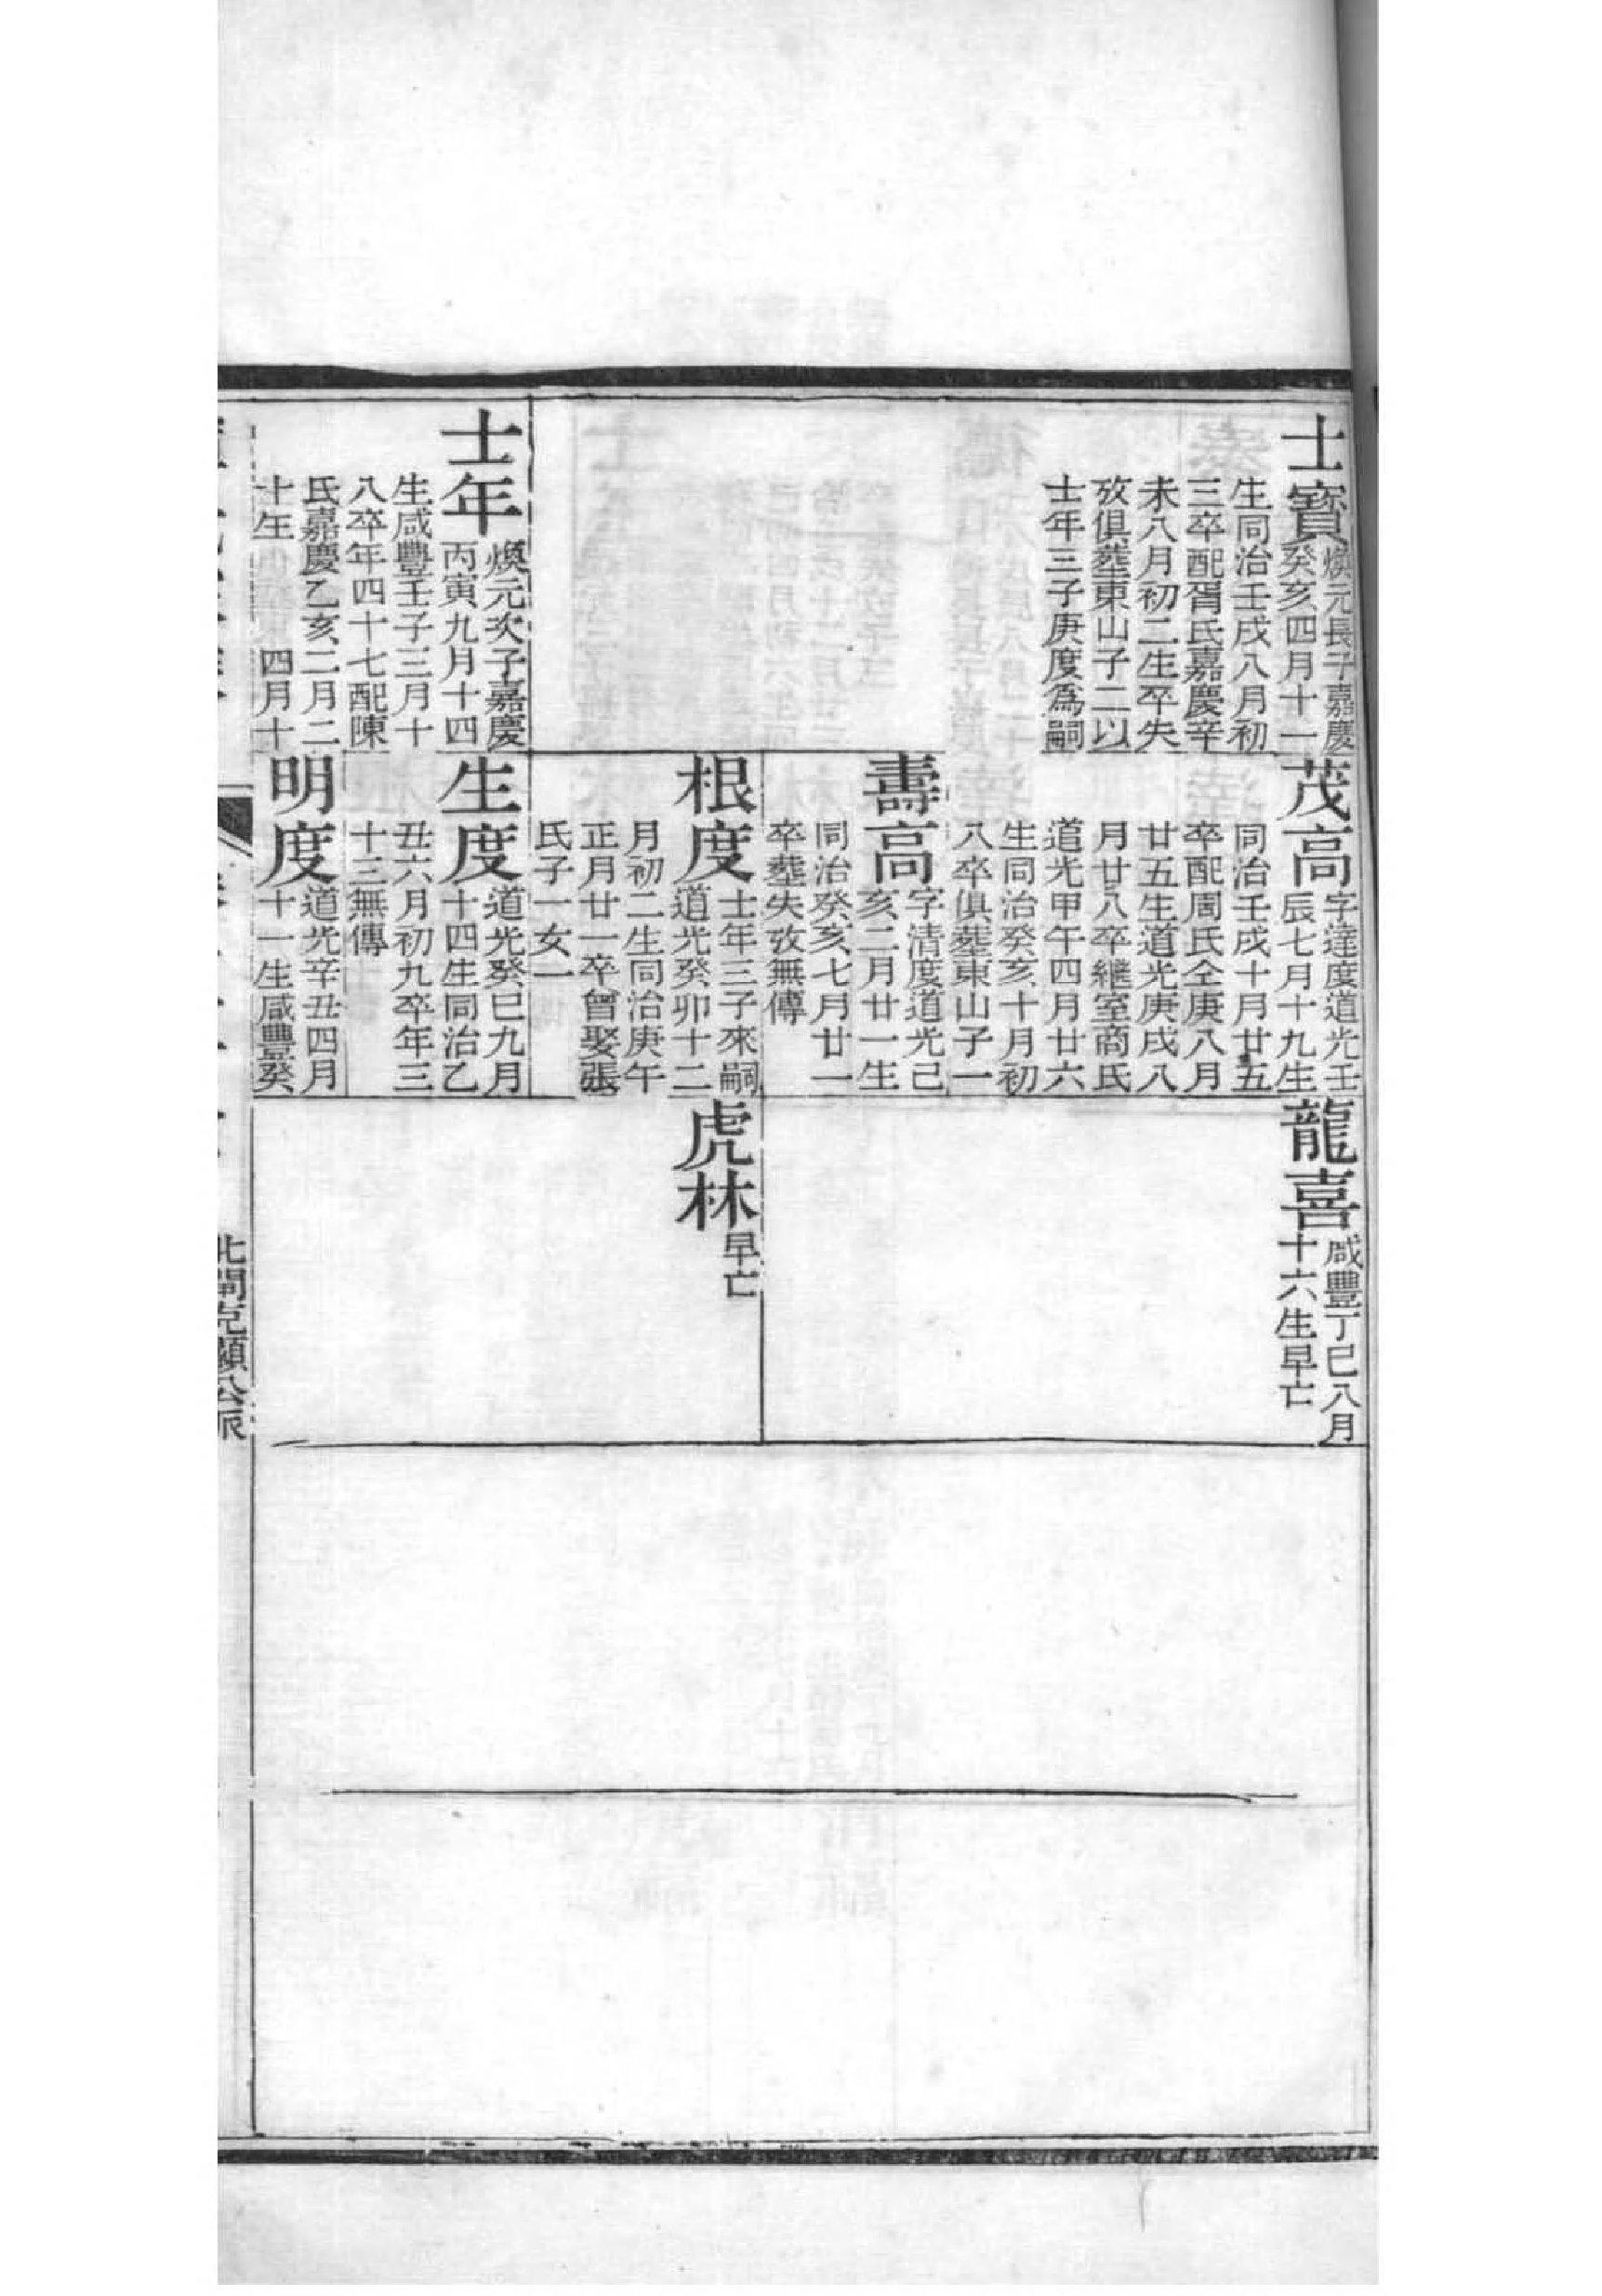 士寶
煥元長子嘉慶
癸亥四月十一
生同治壬戌八月初
三卒配胥氏嘉慶辛
未八月初二生卒失
攷俱塟東山子二以
士年三子庚度爲嗣
士年
煥元次子嘉慶
丙寅九月十四
生咸豐壬子三月十
八卒年四十七配陳
氏嘉慶乙亥二月二
十生 四月十
茂高
字達度道光壬
辰七月十九生
同治壬戌十月廿五
卒配周氏仝庚八月
廿五生道光庚戌八
月廿八卒繼室商氏
道光甲午四月廿六
生同治癸亥十月初
八卒俱塟東山子一
壽高
字清度道光己
亥二月廿一生
同治癸亥七月廿一
卒塟失攷無傳
根度
士年三子來嗣
道光癸卯十二
月初二生同治庚午
正月廿一卒曾娶張
氏子一女一
生度
道光癸巳九月
十四生同治乙
丑六月初九卒年三
十三無傳
明度
道光辛丑四月
十一生咸豐癸
龍喜
咸豐丁巳八月
十六生早亡
虎林
早亡
北閘克顯公派